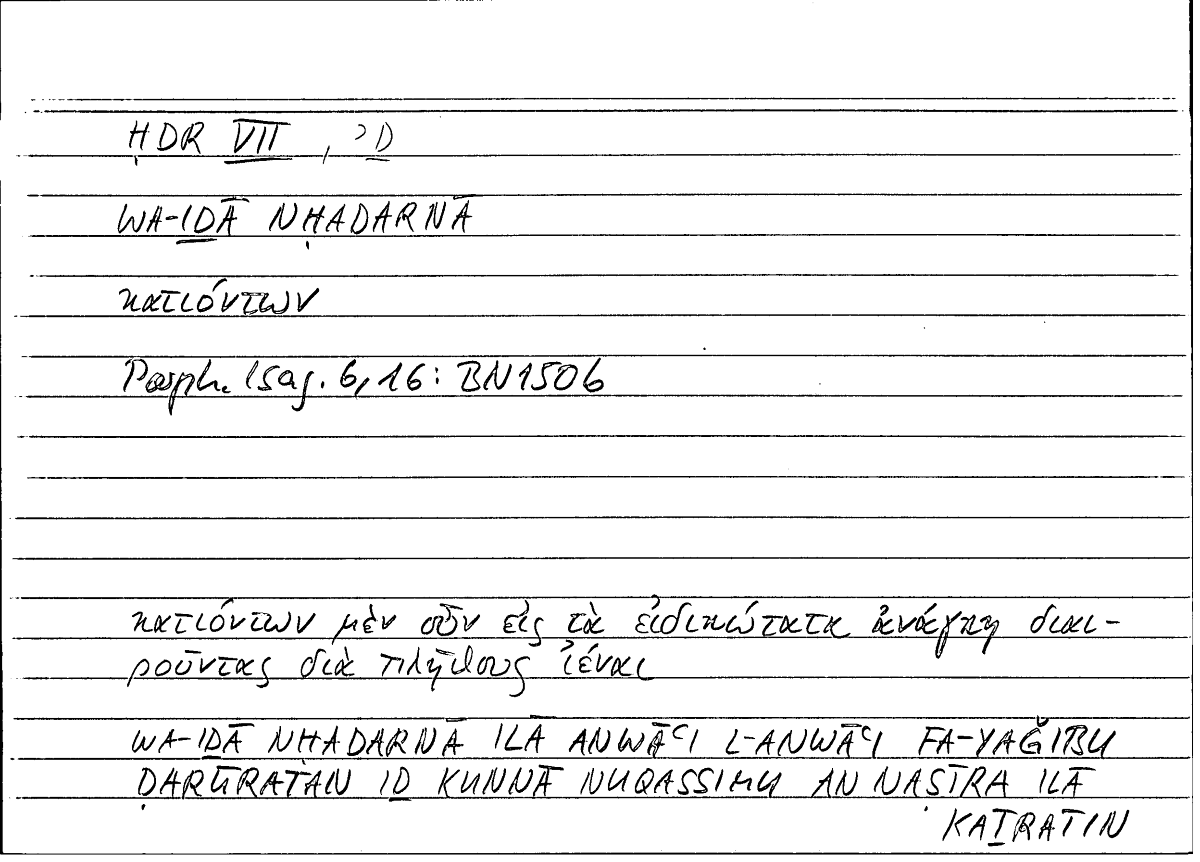 ḤDR VII, ʾḎ
WA-IḎĀ NḤADARNĀ
κατιόντων
Porph. Isag. 6,16: BN150b
κατιόντων μὲν οὖν εἰς τὰ εἰδικώτατα ἀνάγκη διαι-
ροῦντας διὰ πλήθους ἰέναι
WA-IḎĀ NḤADARNĀ ILĀ ANWĀʿI L-ANWĀʿI FA-YAǦIBU
ḌARŪRATAN IḎ KUNNĀ NUQASSIMU AN NAṢĪRA ILĀ
KAṮRATIN